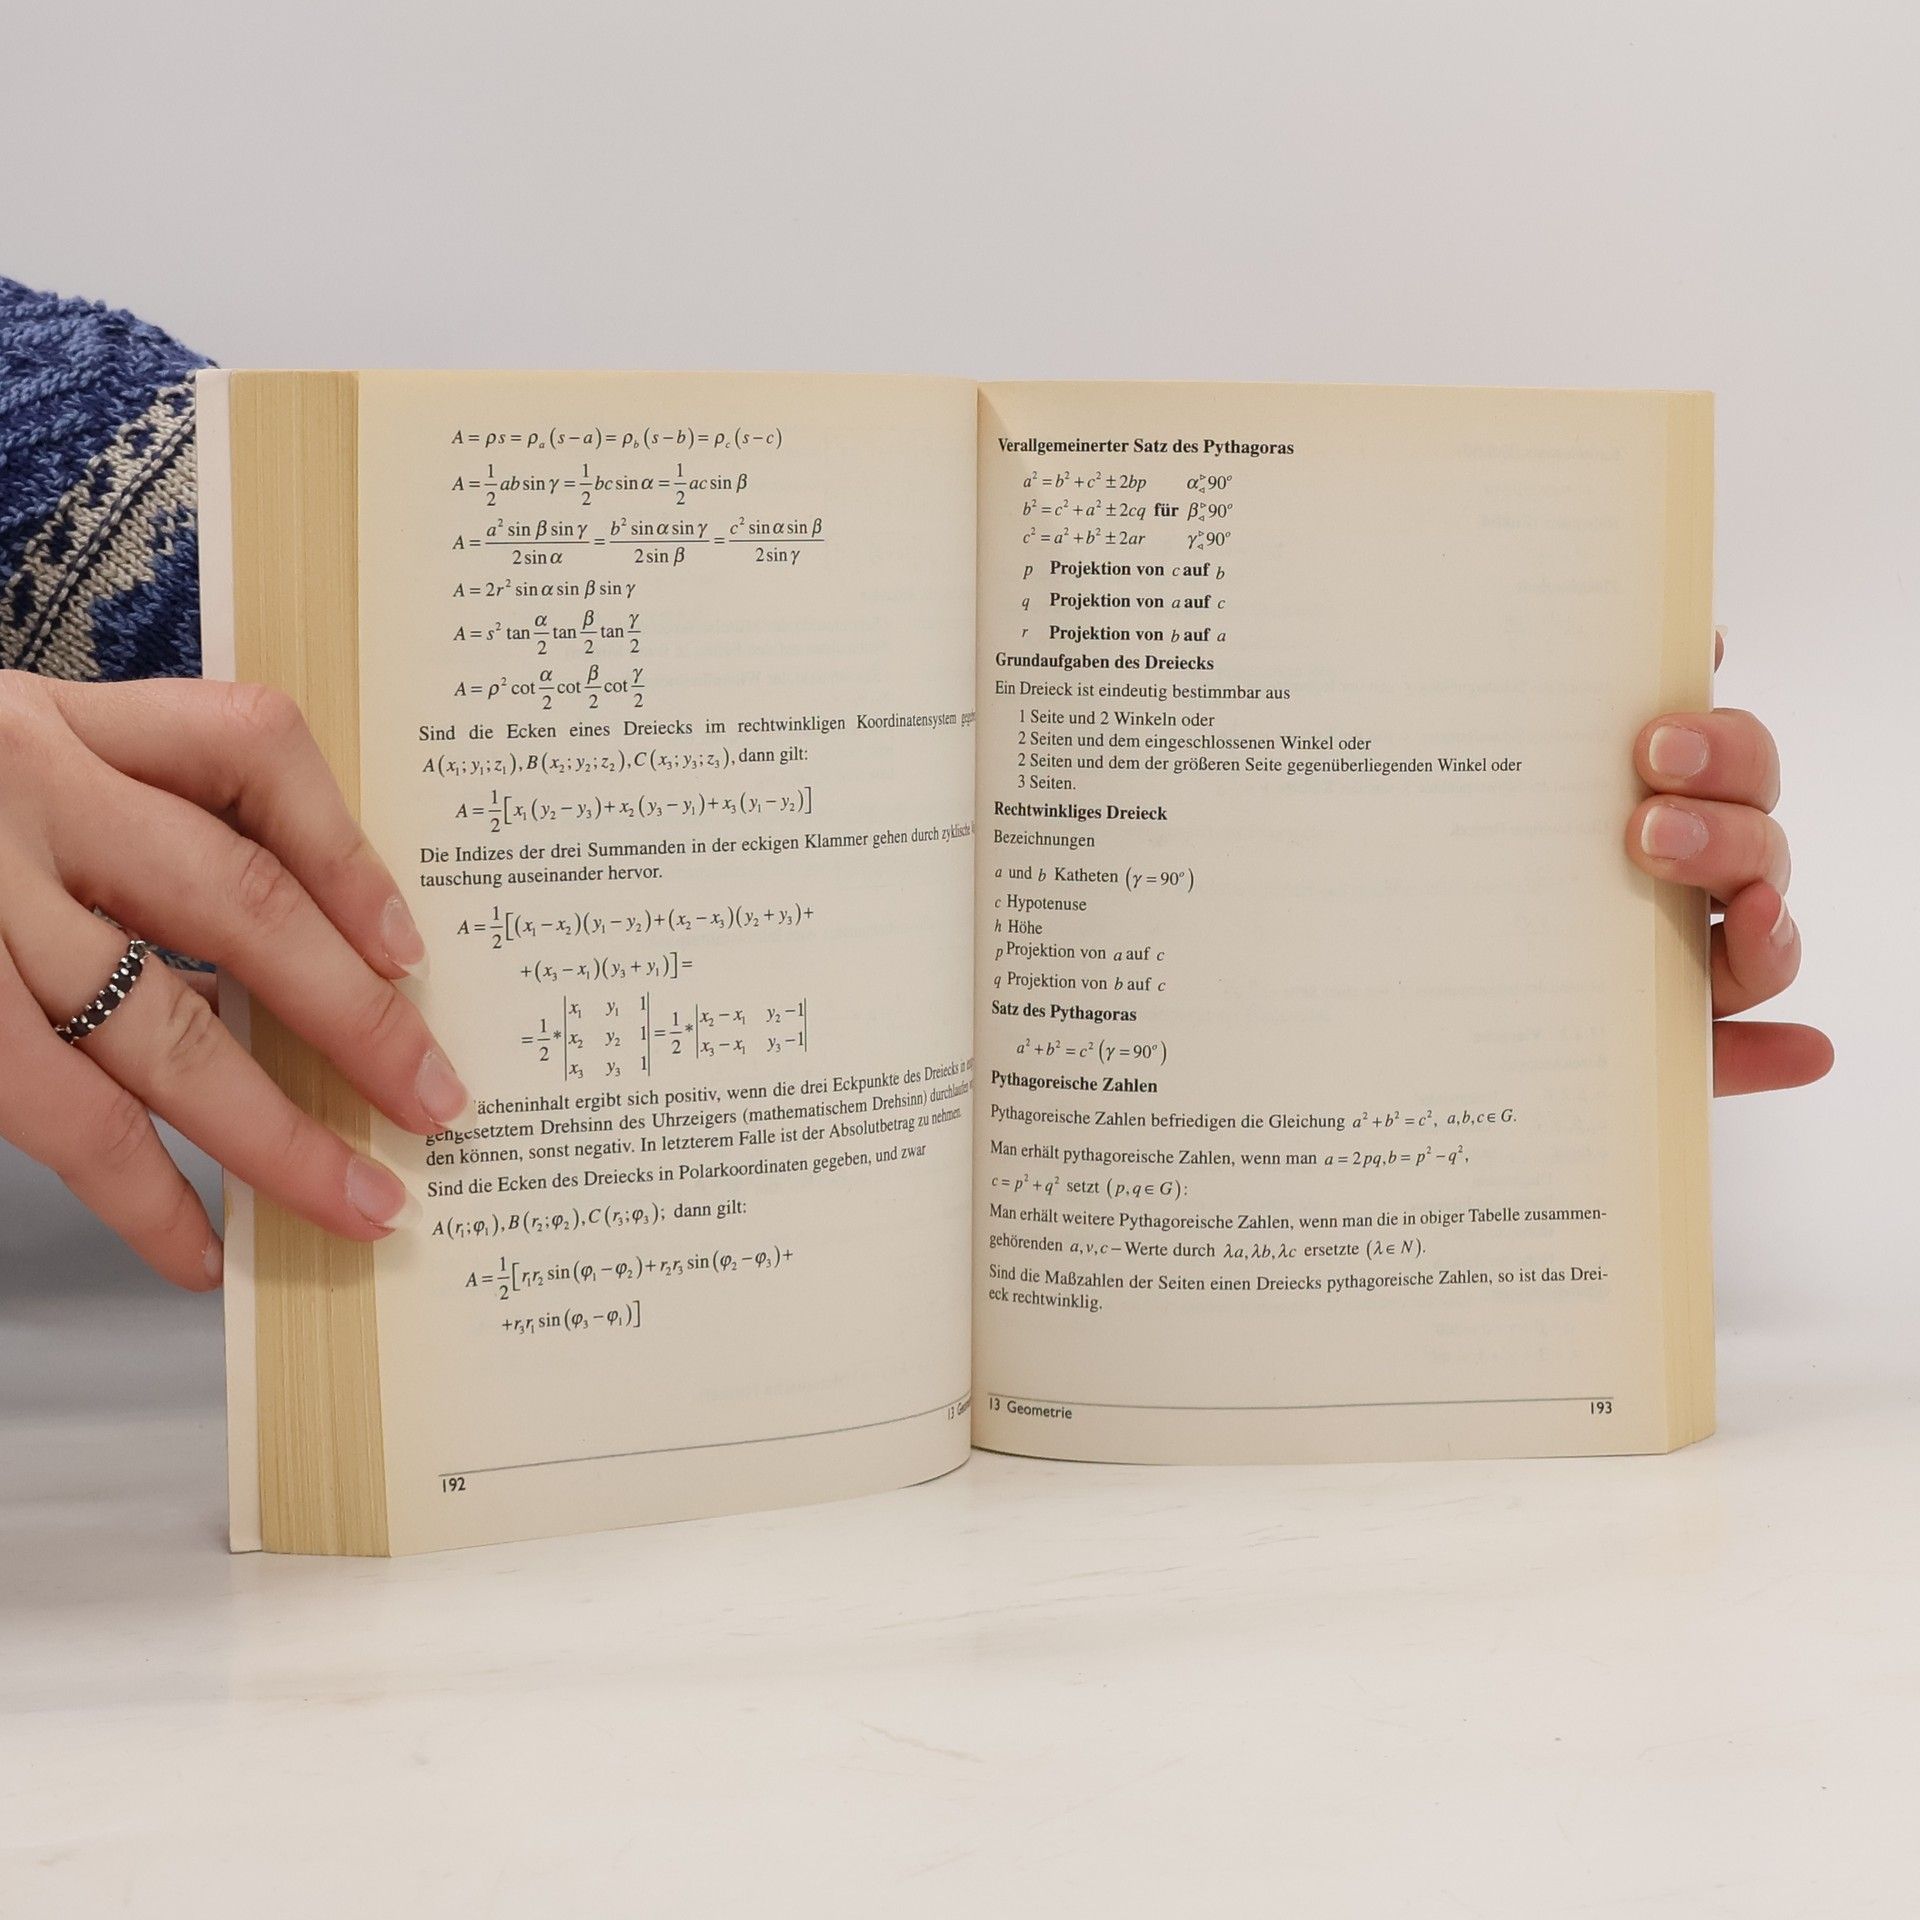 A = ρs = ρ_a (s−a) = ρ_b (s−b) = ρ_c (s−c)
A = 1/2 ab sin γ = 1/2 bc sin α = 1/2 ac sin β
A = a² sin β sin γ / 2 sin α = b² sin α sin γ / 2 sin β = c² sin α sin β / 2 sin γ
A = 2r² sin α sin β sin γ
A = s² tan α/2 tan β/2 tan γ/2
A = ρ² cot α/2 cot β/2 cot γ/2
Sind die Ecken eines Dreiecks im rechtwinkligen Koordinatensystem
A(x₁; y₁; z₁), B(x₂; y₂; z₂), C(x₃; y₃; z₃), dann gilt:
A = 1/2 [x₁(y₂ − y₃) + x₂(y₃ − y₁) + x₃(y₁ − y₂)]
Die Indizes der drei Summanden in der eckigen Klammer gehen durch zyklische
tauschung auseinander hervor.
A = 1/2 [(x₁ − x₂)(y₁ − y₂) + (x₂ − x₃)(y₂ + y₃) +
+ (x₃ − x₁)(y₃ + y₁)] =
= 1/2 * |x₁ y₁ 1; x₂ y₂ 1; x₃ y₃ 1| = 1/2 * |x₂ − x₁ y₂ − 1; x₃ − x₁ y₃ − 1|
ächeninhalt ergibt sich positiv, wenn die drei Eckpunkte des Dreiecks in
gengesetztem Drehsinn des Uhrzeigers (mathematischem Drehsinn) durchlaufen
den können, sonst negativ. In letzterem Falle ist der Absolutbetrag zu nehmen.
Sind die Ecken des Dreiecks in Polarkoordinaten gegeben, und zwar
A(r₁; φ₁), B(r₂; φ₂), C(r₃; φ₃); dann gilt:
A = 1/2 [r₁r₂ sin(φ₁ − φ₂) + r₂r₃ sin(φ₂ − φ₃) +
+ r₃r₁ sin(φ₃ − φ₁)]
13
192
Verallgemeinerter Satz des Pythagoras
a² = b² + c² ± 2bp α 90°
b² = c² + a² ± 2cq für β 90°
c² = a² + b² ± 2ar γ 90°
p Projektion von c auf b
q Projektion von a auf c
r Projektion von b auf a
Grundaufgaben des Dreiecks
Ein Dreieck ist eindeutig bestimmbar aus
1 Seite und 2 Winkeln oder
2 Seiten und dem eingeschlossenen Winkel oder
2 Seiten und dem der größeren Seite gegenüberliegenden Winkel oder
3 Seiten.
Rechtwinkliges Dreieck
Bezeichnungen
a und b Katheten (γ = 90°)
c Hypotenuse
h Höhe
p Projektion von a auf c
q Projektion von b auf c
Satz des Pythagoras
a² + b² = c² (γ = 90°)
Pythagoreische Zahlen
Pythagoreische Zahlen befriedigen die Gleichung a² + b² = c², a, b, c ∈ G.
Man erhält pythagoreische Zahlen, wenn man a = 2pq, b = p² − q²,
c = p² + q² setzt (p, q ∈ G):
Man erhält weitere Pythagoreische Zahlen, wenn man die in obiger Tabelle zusammen-
gehörenden a, v, c − Werte durch λa, λb, λc ersetzte (λ ∈ N).
Sind die Maßzahlen der Seiten einen Dreiecks pythagoreische Zahlen, so ist das Drei-
eck rechtwinklig.
13 Geometrie 193